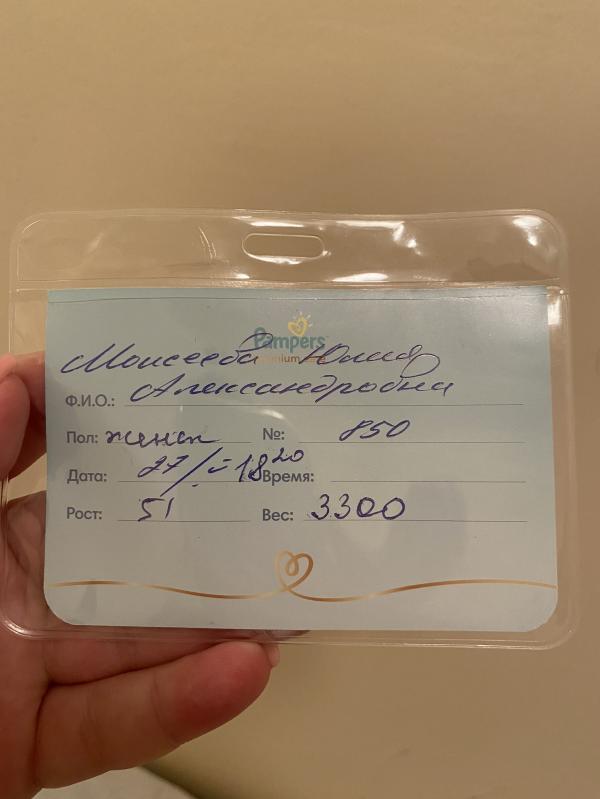 Pampers
Моисеева Юлия
Ф.И.О.: Александровна
Пол: женск №: 850
Дата: 27/ 18 20 Время:
Рост: 51 Вес: 3300